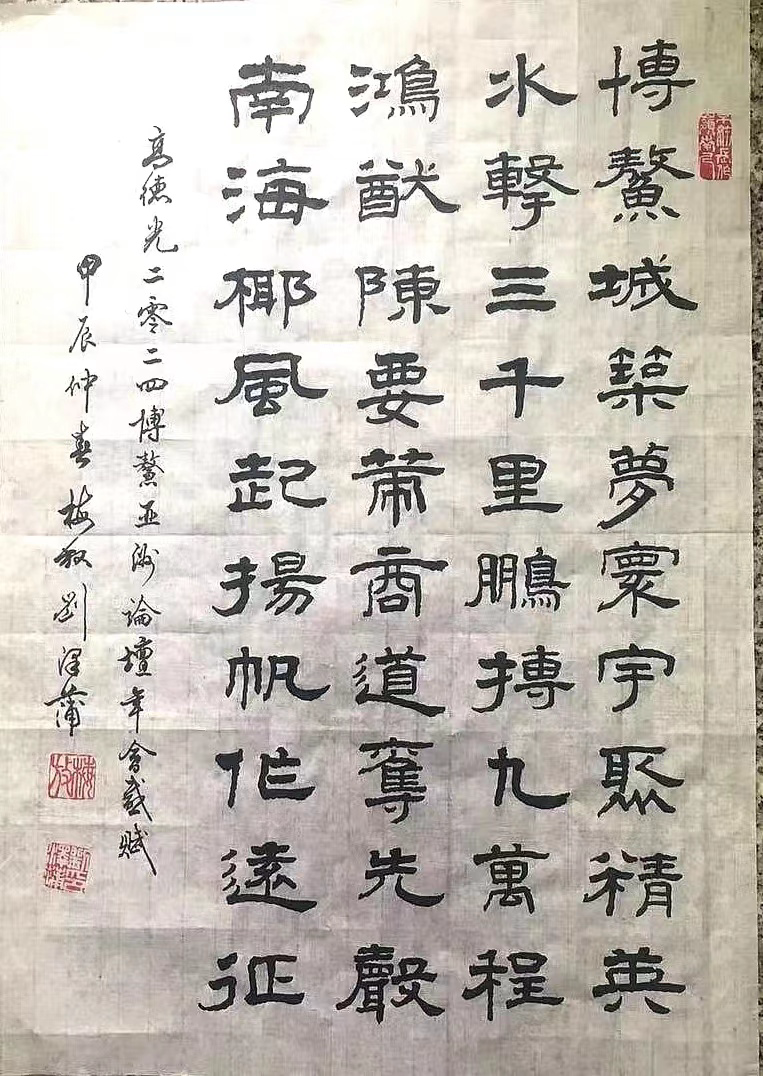 博鰲城築夢寰宇聚精英
水擊三千里鵬摶九萬程
鴻猷陳要策商道奪先聲
南海椰風起揚帆作遠征
高德光二零二四博鰲亚洲論壇年會感賦
甲辰仲春梅放劉澤蒲
梅放